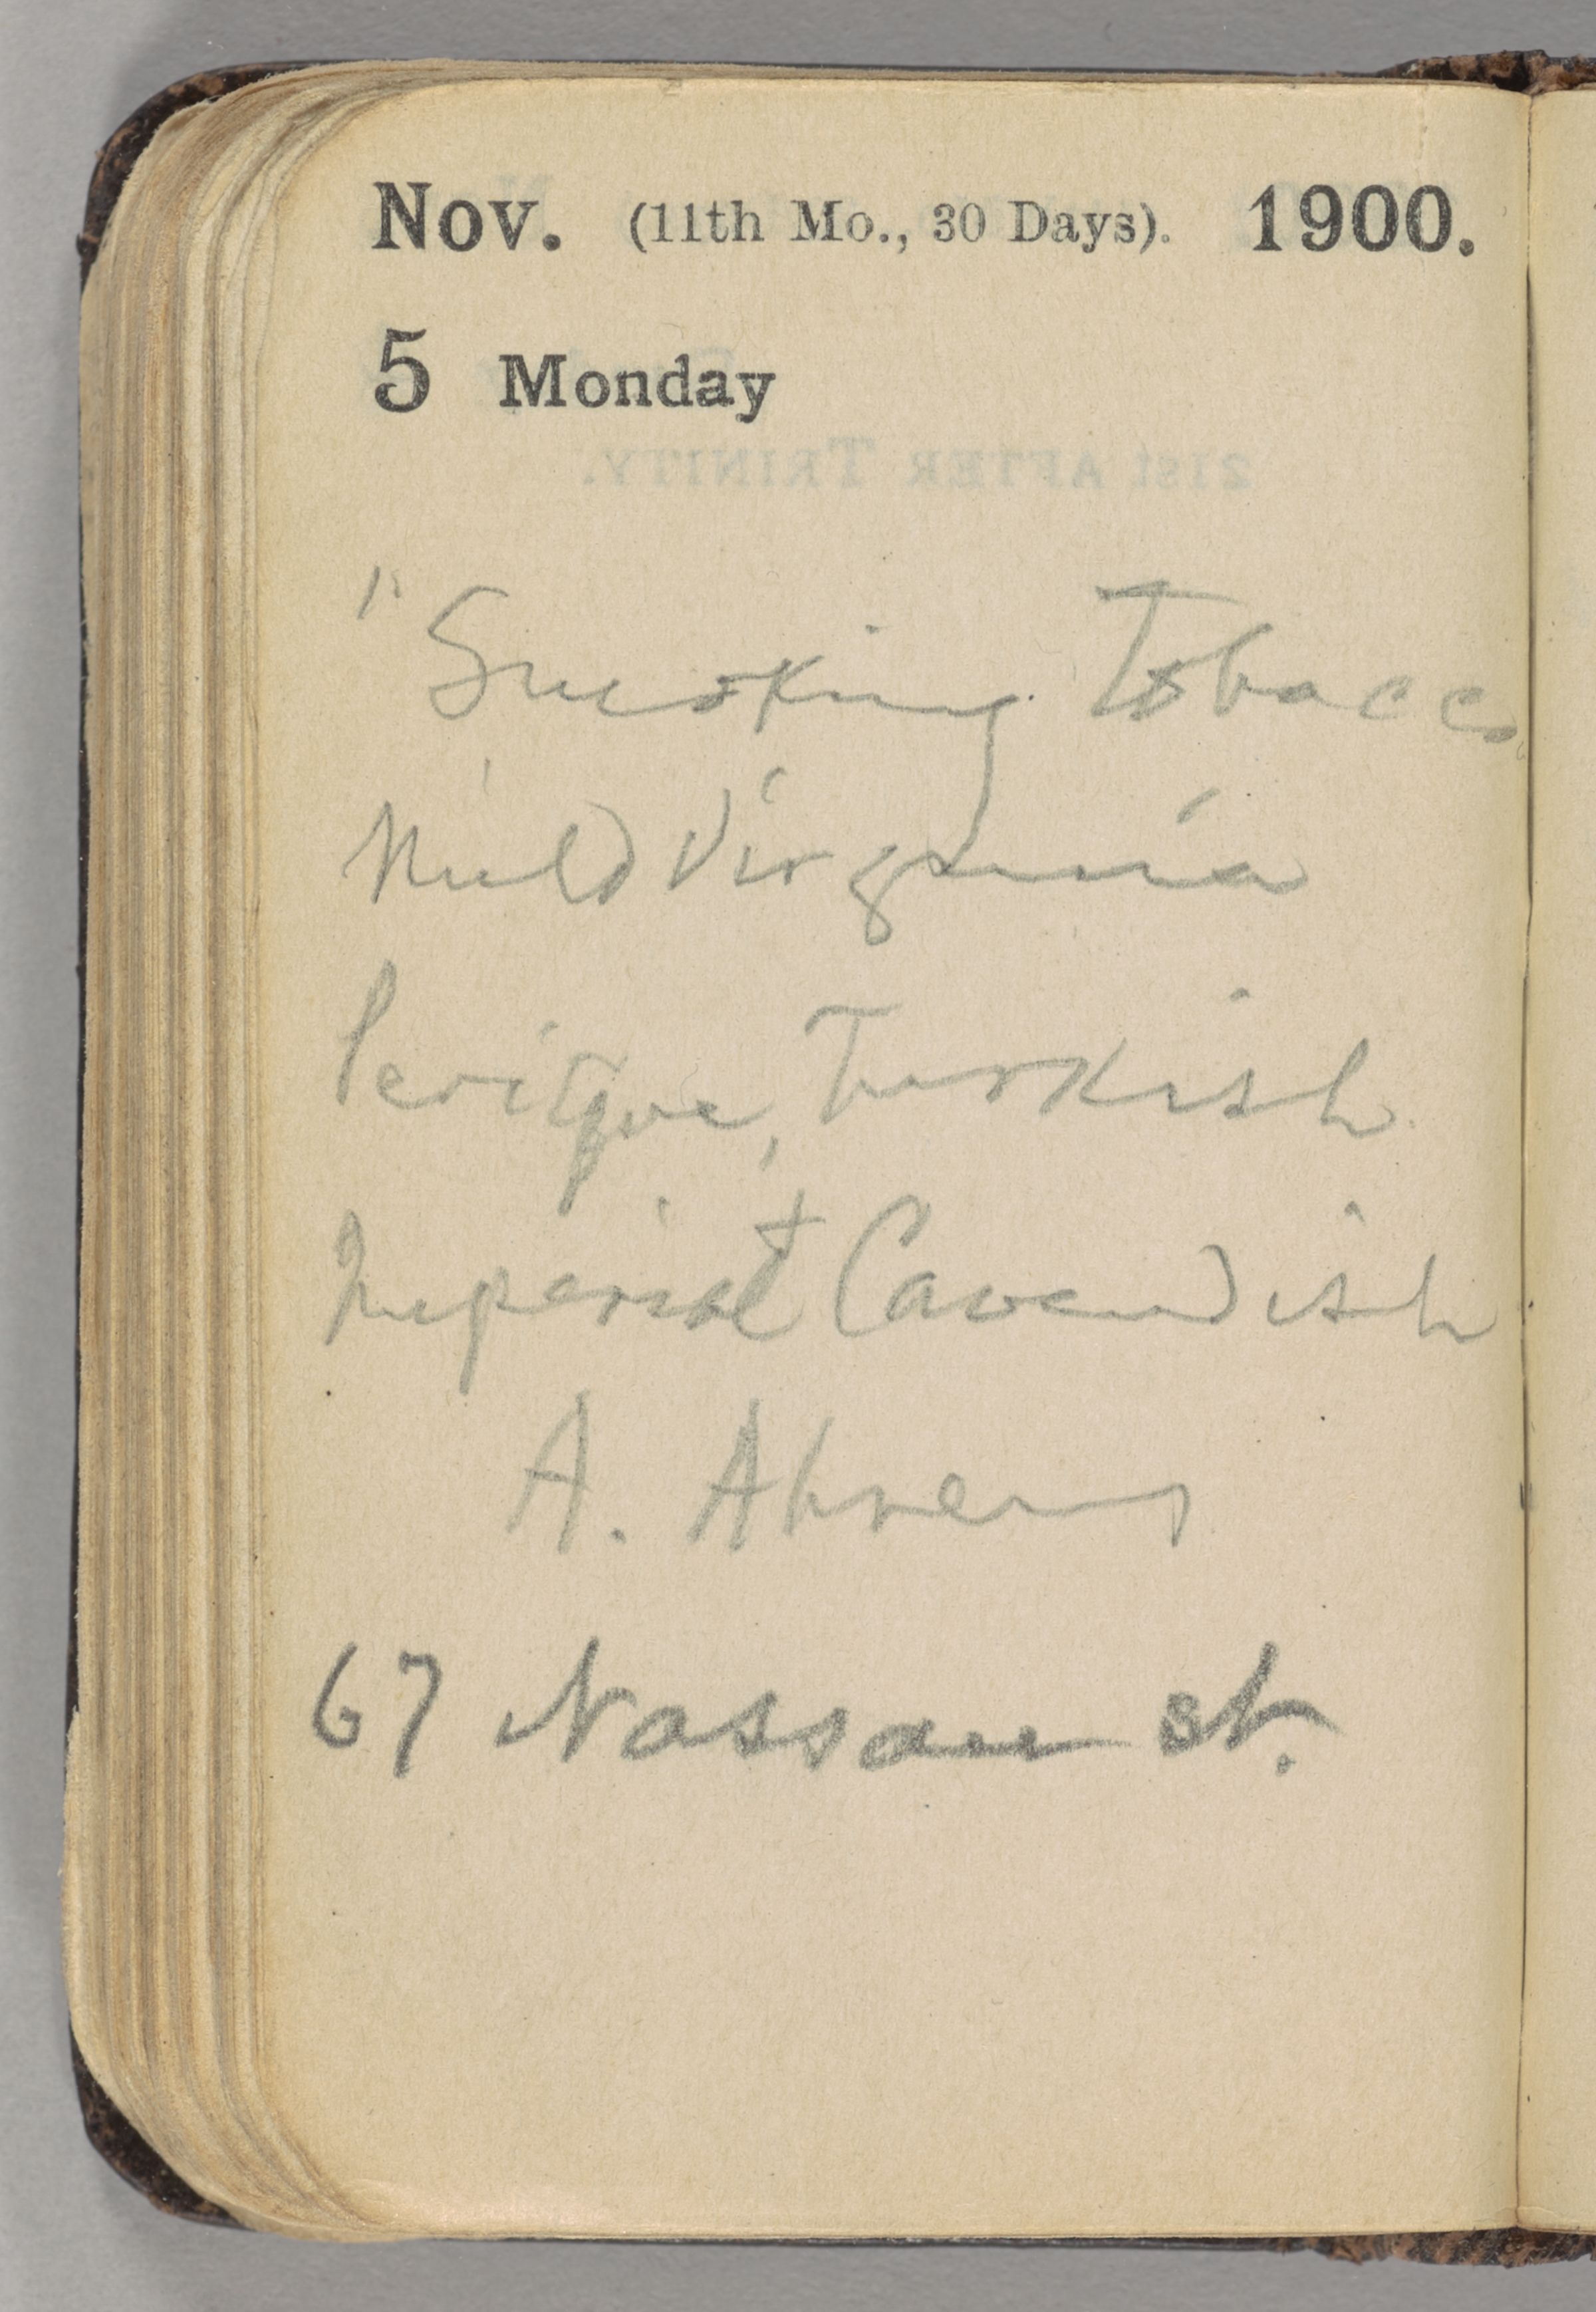 Nov. (11th Mo., 30 Days). 1900.
5 Monday
21st AFTER TRINITY.
"Smoking Tobacco
Mild Virginia
Perique, Turkish
Imperial + Cavendish
A. Ahrens
67 Nassau St.